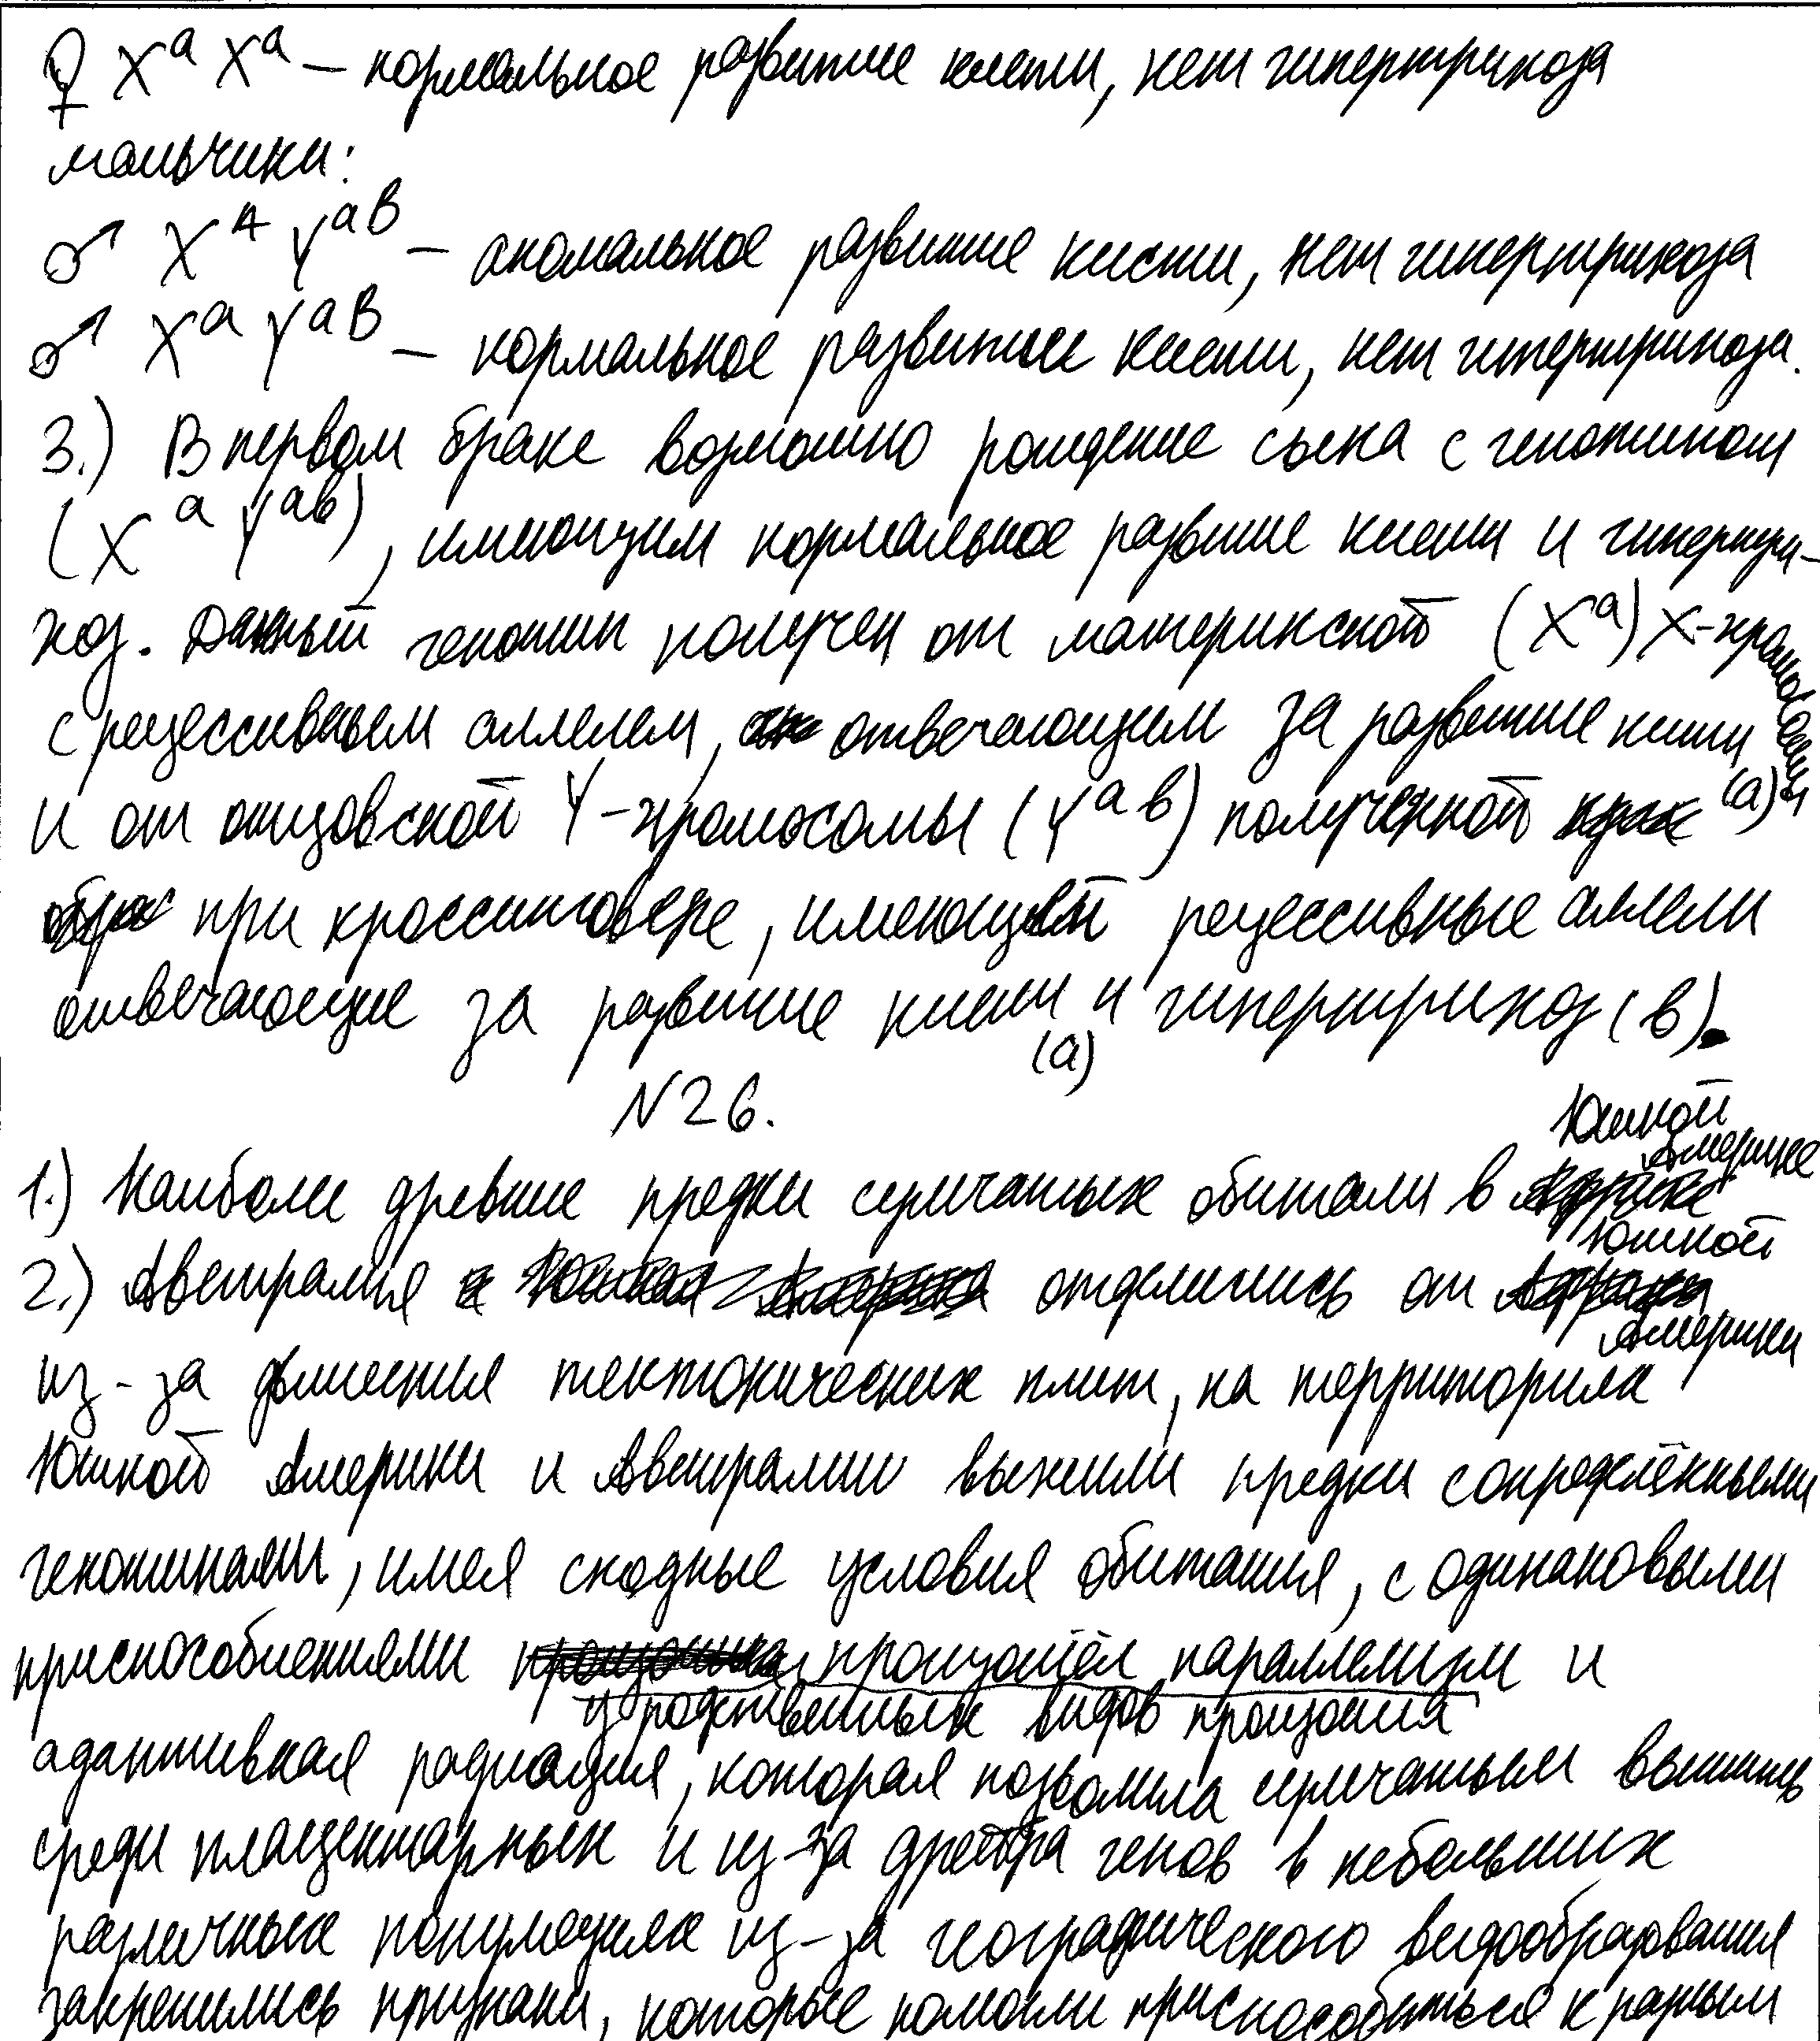 ♀ Xᵃ Xᵃ – нормальное развитие кисти, нет гипертрихоза
мальчики:
♂ Xᴬ Yᵃᴮ – аномальное развитие кисти, нет гипертрихоза
♂ Xᵃ Yᵃᴮ – нормальное развитие кисти, нет гипертрихоза.
3.) В первом браке возможно рождение сына с генотипом
(Xᵃ Yᵃᵇ), имеющим нормальное развитие кисти и гипертри-
хоз. Данный генотип получен от материнской (Xᵃ) X-хромосомы
с рецессивным аллелем, отвечающим за развитие кисти (а)
и от отцовской Y-хромосомы (Yᵃᵇ) полученной
при кроссинговере, имеющей рецессивные аллели
отвечающие за развитие кисти (а) и гипертрихоз (в).
N26.
1.) Наиболее древние предки сумчатых обитали в Южной Америке
2.) Австралия отделились от Южной Америки
из-за движения тектонических плит, на территориях
Южной Америки и Австралии выжили предки с определёнными
генотипами, имея сходные условия обитания, с одинаковыми
приспособлениями произошёл параллелизм и
у родственных видов произошла
адаптивная радиация, которая позволила сумчатым выжить
среди плацентарных и из-за дрейфа генов в небольших
различных популяциях из-за географического видообразования
закрепились признаки, которые помогли приспособиться к разным